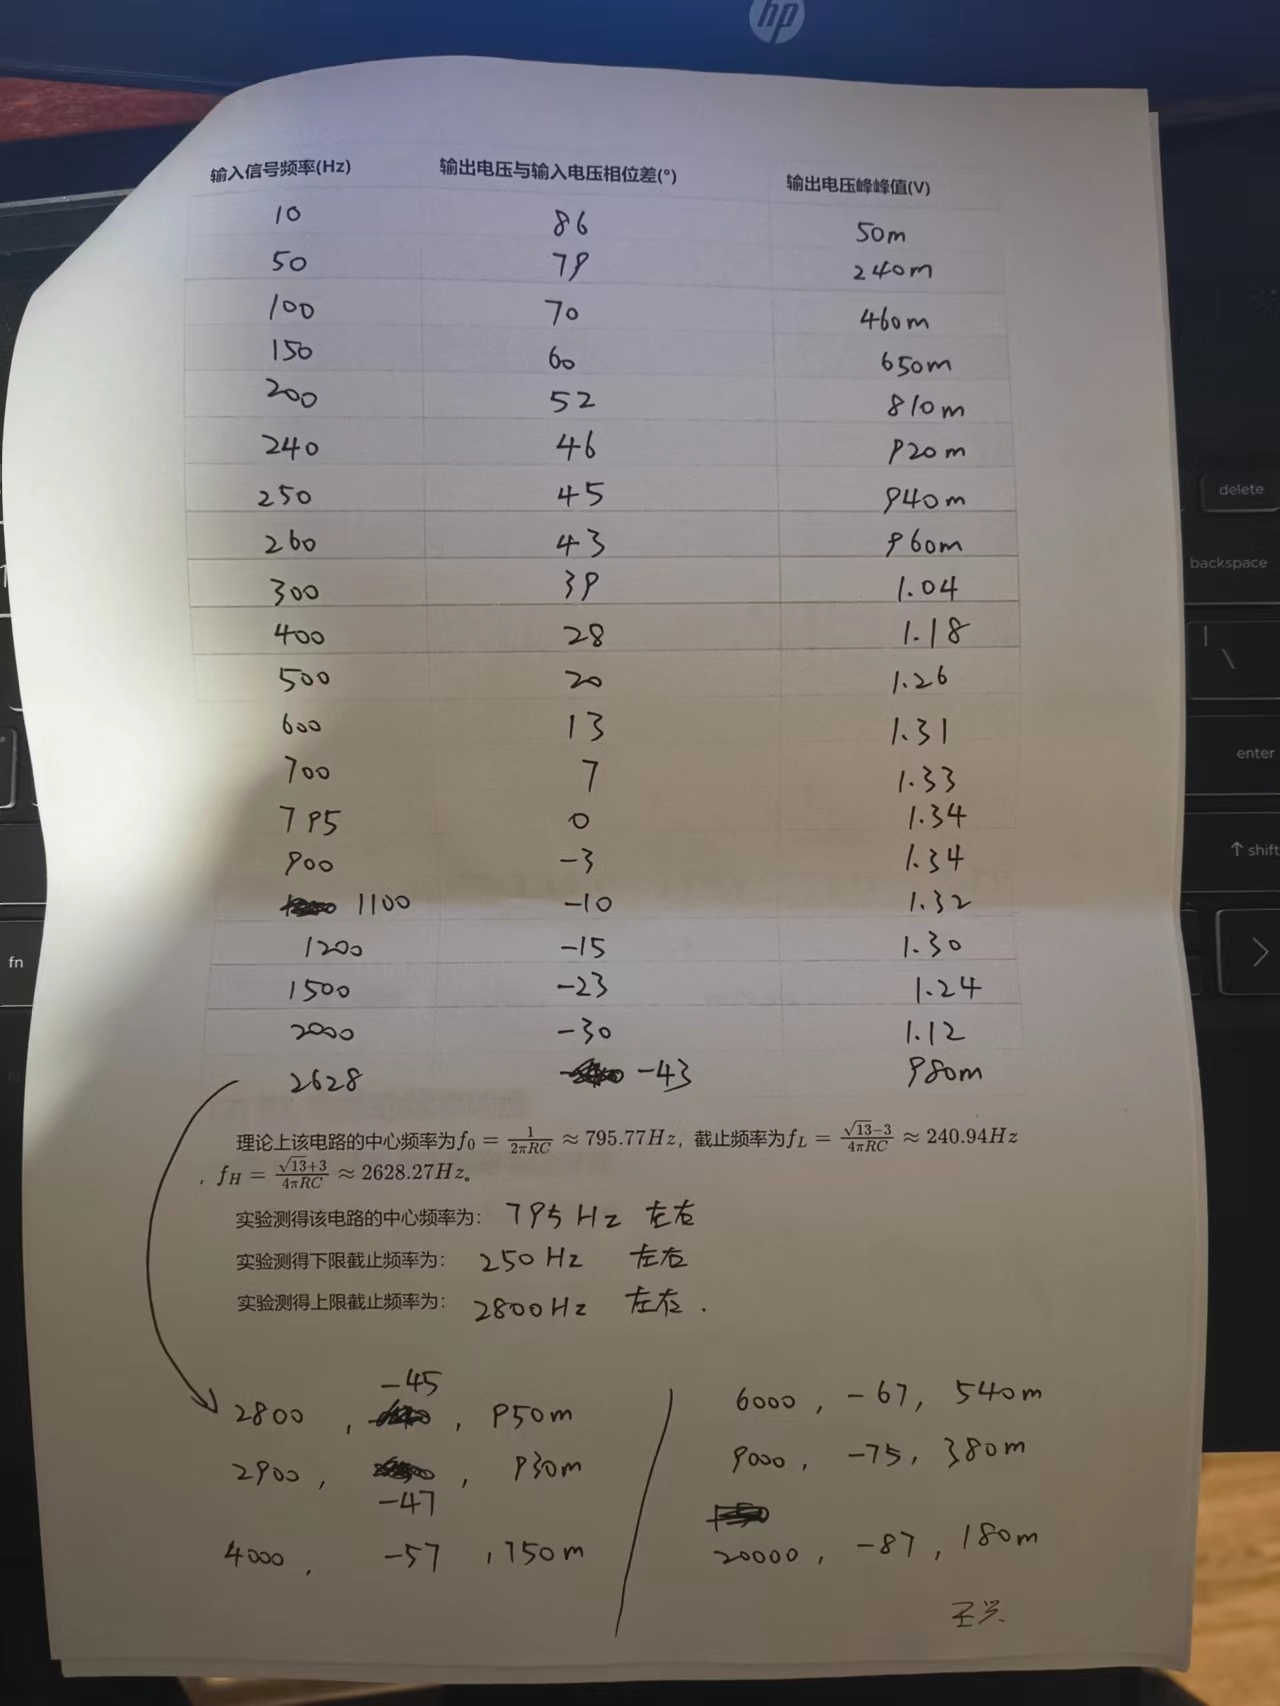 hp
输入信号频率(Hz) 输出电压与输入电压相位差(°) 输出电压峰峰值(V)
10 86 50m
50 79 240m
100 70 460m
150 60 650m
200 52 810m
240 46 920m
250 45 940m
260 43 960m
300 39 1.04
400 28 1.18
500 20 1.26
600 13 1.31
700 7 1.33
795 0 1.34
900 -3 1.34
1100 -10 1.32
1200 -15 1.30
1500 -23 1.24
2000 -30 1.12
2628 -43 980m
理论上该电路的中心频率为f₀ = 1/2πRC ≈ 795.77Hz，截止频率为f_L = √13−3/4πRC ≈ 240.94Hz
，f_H = √13+3/4πRC ≈ 2628.27Hz。
实验测得该电路的中心频率为： 795Hz 左右
实验测得下限截止频率为： 250Hz 左右
实验测得上限截止频率为： 2800Hz 左右.
2800, -45, 950m
2900, -47, 930m
4000, -57, 750m
6000, -67, 540m
9000, -75, 380m
20000, -87, 180m
delete
backspace
|
\
enter
↑ shift
fn